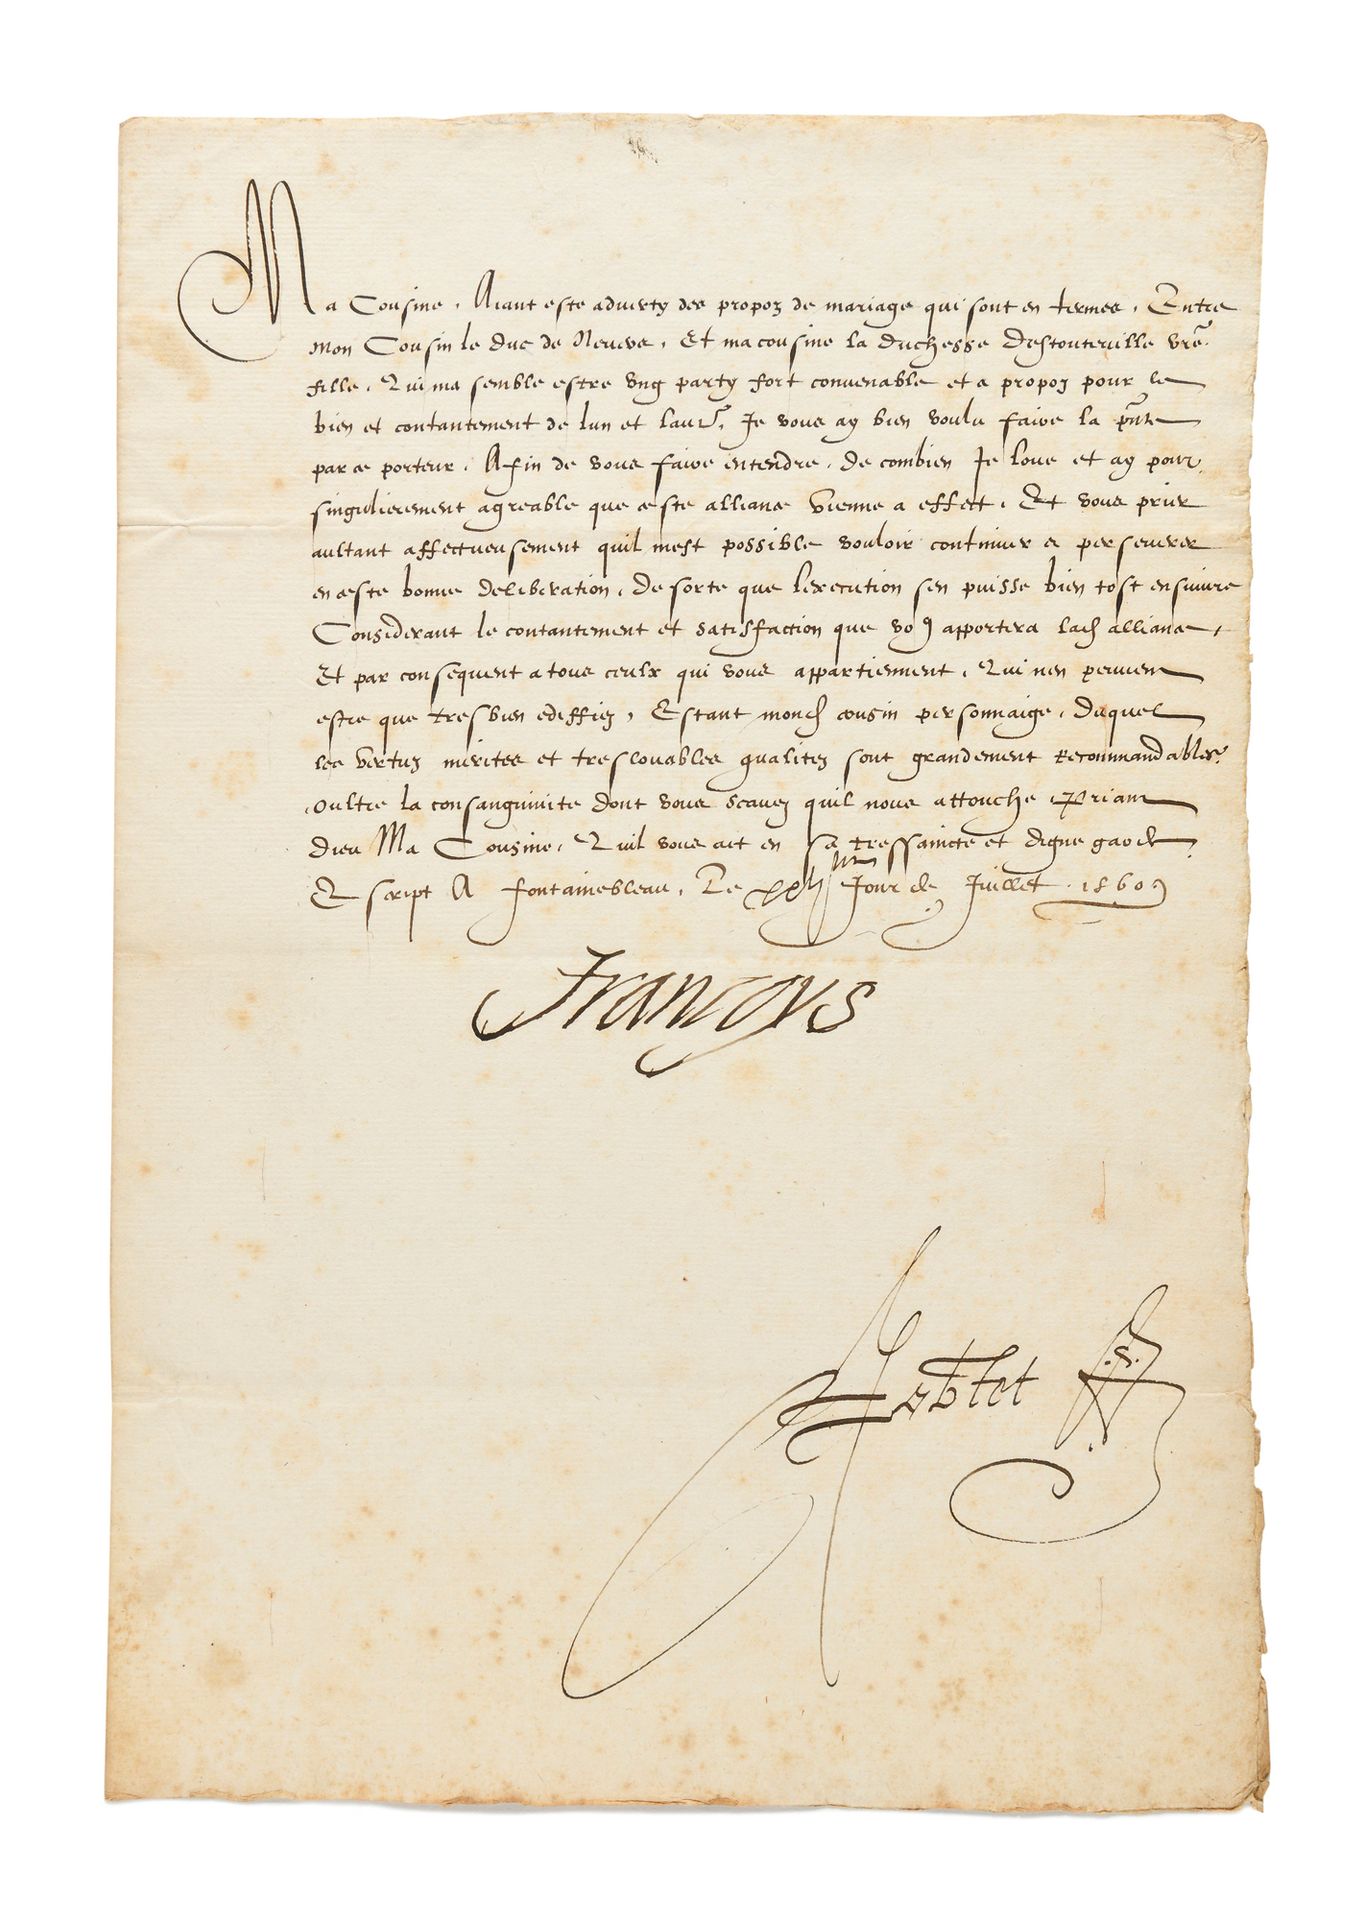 Ma Cousine. Aiant este aduerty des propoz de mariage qui sont en termes. Entre
mon Cousin le duc de Neuers. Et ma cousine la duchesse destouteuille vre
fille. Qui ma semble estre vng party fort conuenable et a propoz pour le
bien et contantement de lun et laure. Je vous ay bien voulu faire la pnte
par ce porteur. Afin de vous faire entendre. de combien Je loue et ay pour
singulierement agreable que ceste alliance vienne a effect. Et vous prier
aultant affectueusement quil mest possible vouloir continuer et perseuerer
en ceste bonne deliberation. de sorte que lexecution sen puisse bien tost ensuiure
Considerant le contantement et satisfaction que vo9 apportera lad alliance.
Et par consequent a tous ceulx qui vous appartiennent. Qui nen peuuent
estre que tresbien ediffiez. Estant mond cousin personnaige. duquel
les vertuz merites et treslouables qualitez sont grandement Recommandables.
oultre la consanguinite dont vous scauez quil nous attouche Priant
dieu Ma Cousine. Quil vous ait en sa tressaincte et digne garde
Escript A fontainebleau. Le Jour de Juillet. 1560
Francoys
Robtet